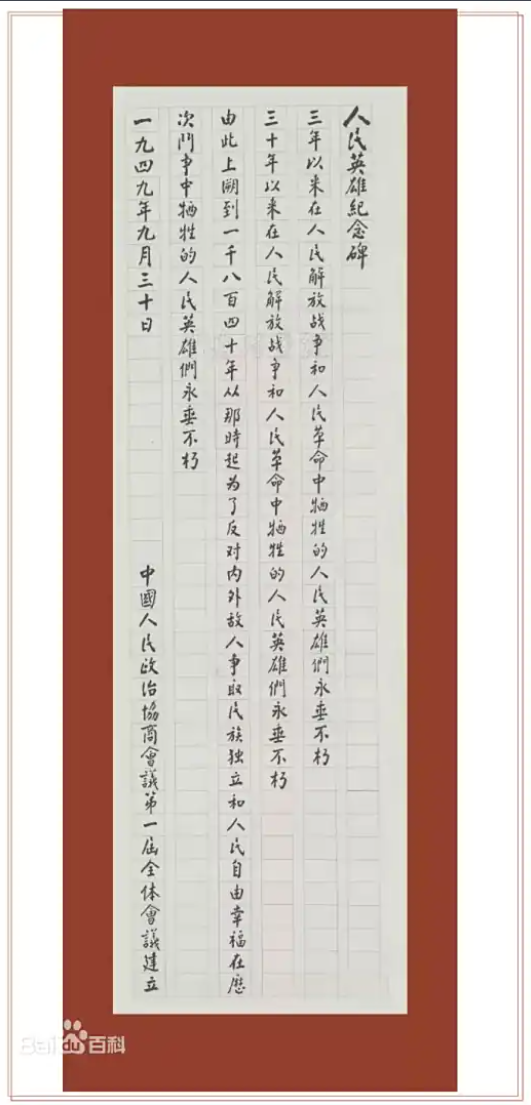 人民英雄紀念碑
三年以来在人民解放战争和人民革命中牺牲的人民英雄們永垂不朽
三十年以来在人民解放战争和人民革命中牺牲的人民英雄們永垂不朽
由此上溯到一千八百四十年从那時起为了反对内外敌人争取民族独立和人民自由幸福在歷
次鬥争中牺牲的人民英雄們永垂不朽
一九四九年九月三十日 中國人民政治協商會議第一届全体會議建立
Baidu百科